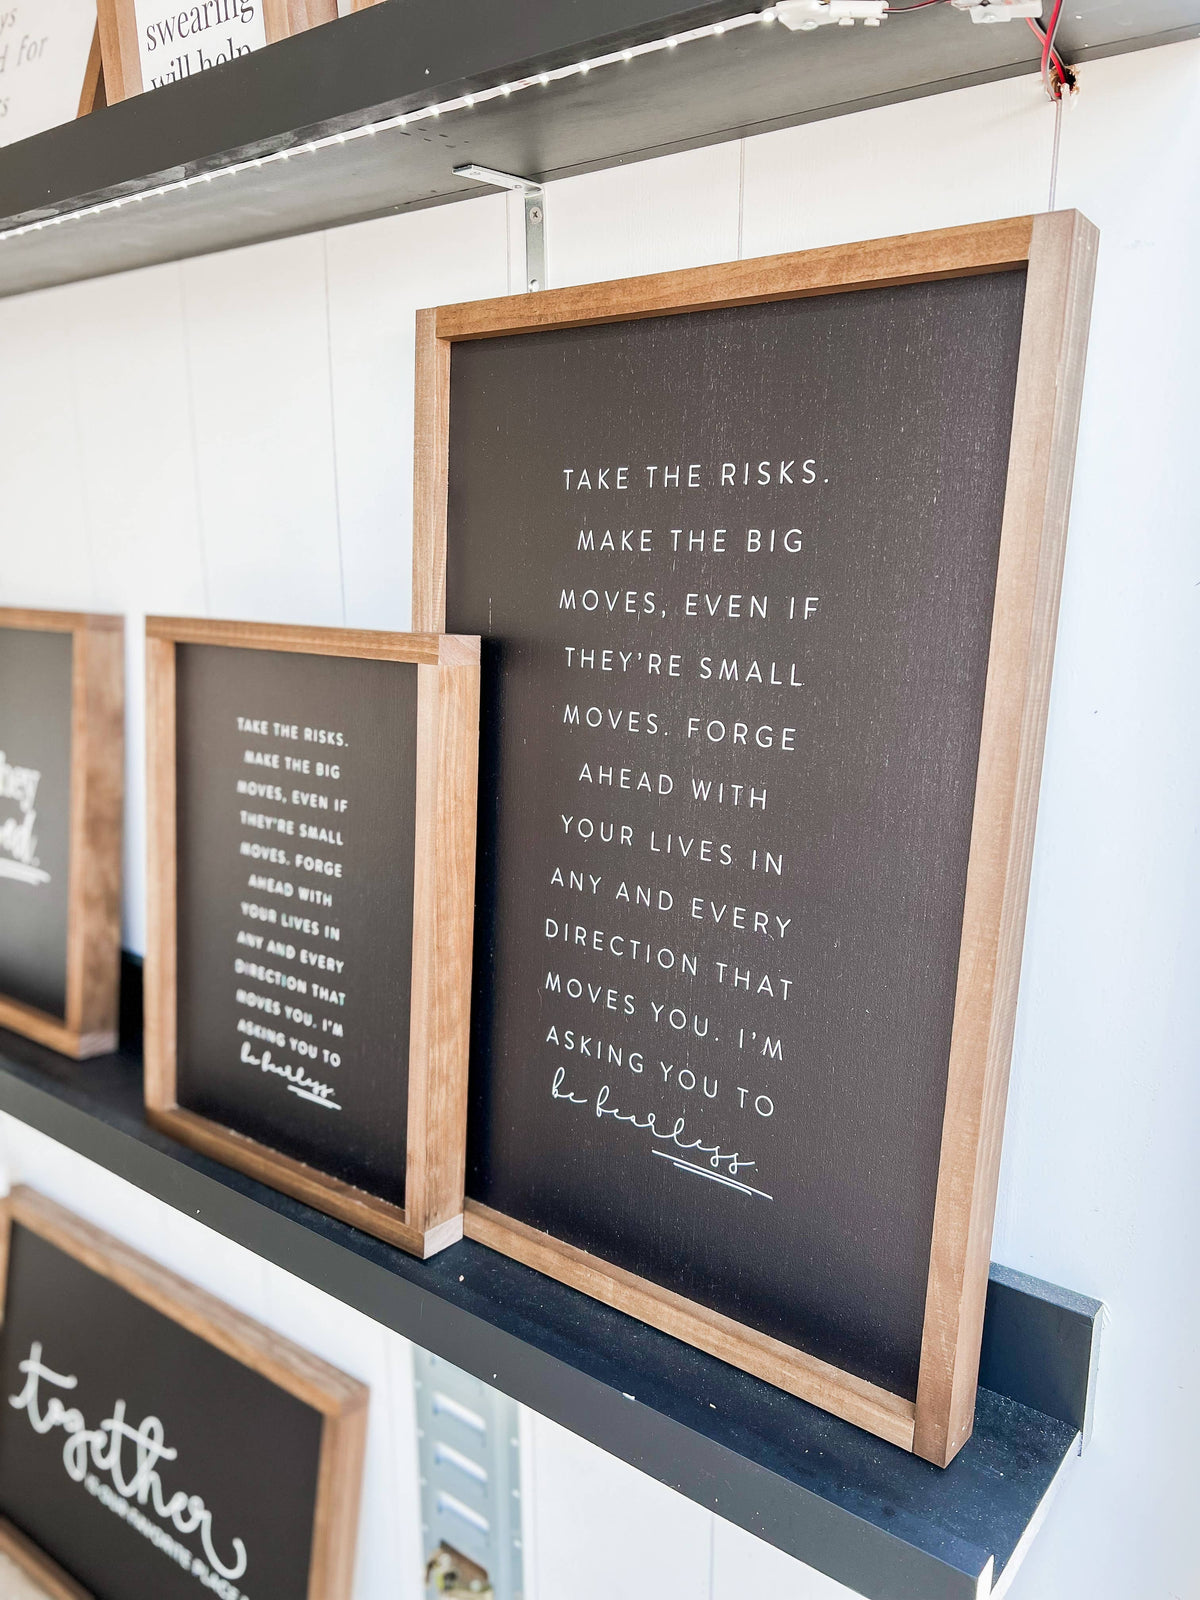 ys
d for
rs
swearing
will help
TAKE THE RISKS.
MAKE THE BIG
MOVES, EVEN IF
THEY'RE SMALL
MOVES. FORGE
AHEAD WITH
YOUR LIVES IN
ANY AND EVERY
DIRECTION THAT
MOVES YOU. I'M
ASKING YOU TO
be fearless.
TAKE THE RISKS.
MAKE THE BIG
MOVES, EVEN IF
THEY'RE SMALL
MOVES. FORGE
AHEAD WITH
YOUR LIVES IN
ANY AND EVERY
DIRECTION THAT
MOVES YOU. I'M
ASKING YOU TO
be fearless.
together
IS OUR FAVORITE PLACE